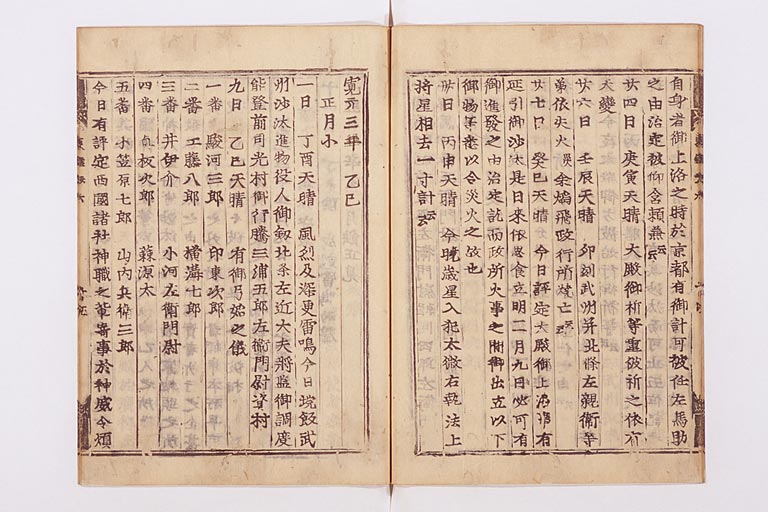 自身者御上洛之時於京都有御計可被任左馬助
之由治定被仰含頼兼云云
廿四日庚寅天晴 大殿御祈等重被祈之依有
天變
廿六日 壬辰天晴 卯刻武州并北條左親衛等
第依失火 余焔飛政所 亡云云
廿七日 癸巳天晴 今日評定大殿御上洛 有
延引御沙汰是日来依 食立明二月九日必可有
御進發之由治定訖而政所火事之間御出立以下
御物等悉以令災火之故也
廿日 丙申天晴 今晩歳星入犯太微右執法上
将星相去一寸計云云
寛元三年 乙巳
正月小
一日 丁酉天晴 風烈及深更雷鳴今日垸飯武
州沙汰進物役人御釼北条左近大夫將監御調度
能登前司光村御行騰三浦五郎左衛門尉資村
九日 乙巳天晴 有御弓始之儀
一番 駿河三郎 印東次郎
二番 工藤八郎 横溝七郎
三番 井伊介 小河左衛門尉
四番 眞板次郎 蘇源太
五番 小笠原七郎 山内兵衛三郎
今日有評定西國諸社神職之輩寄事於神威令煩